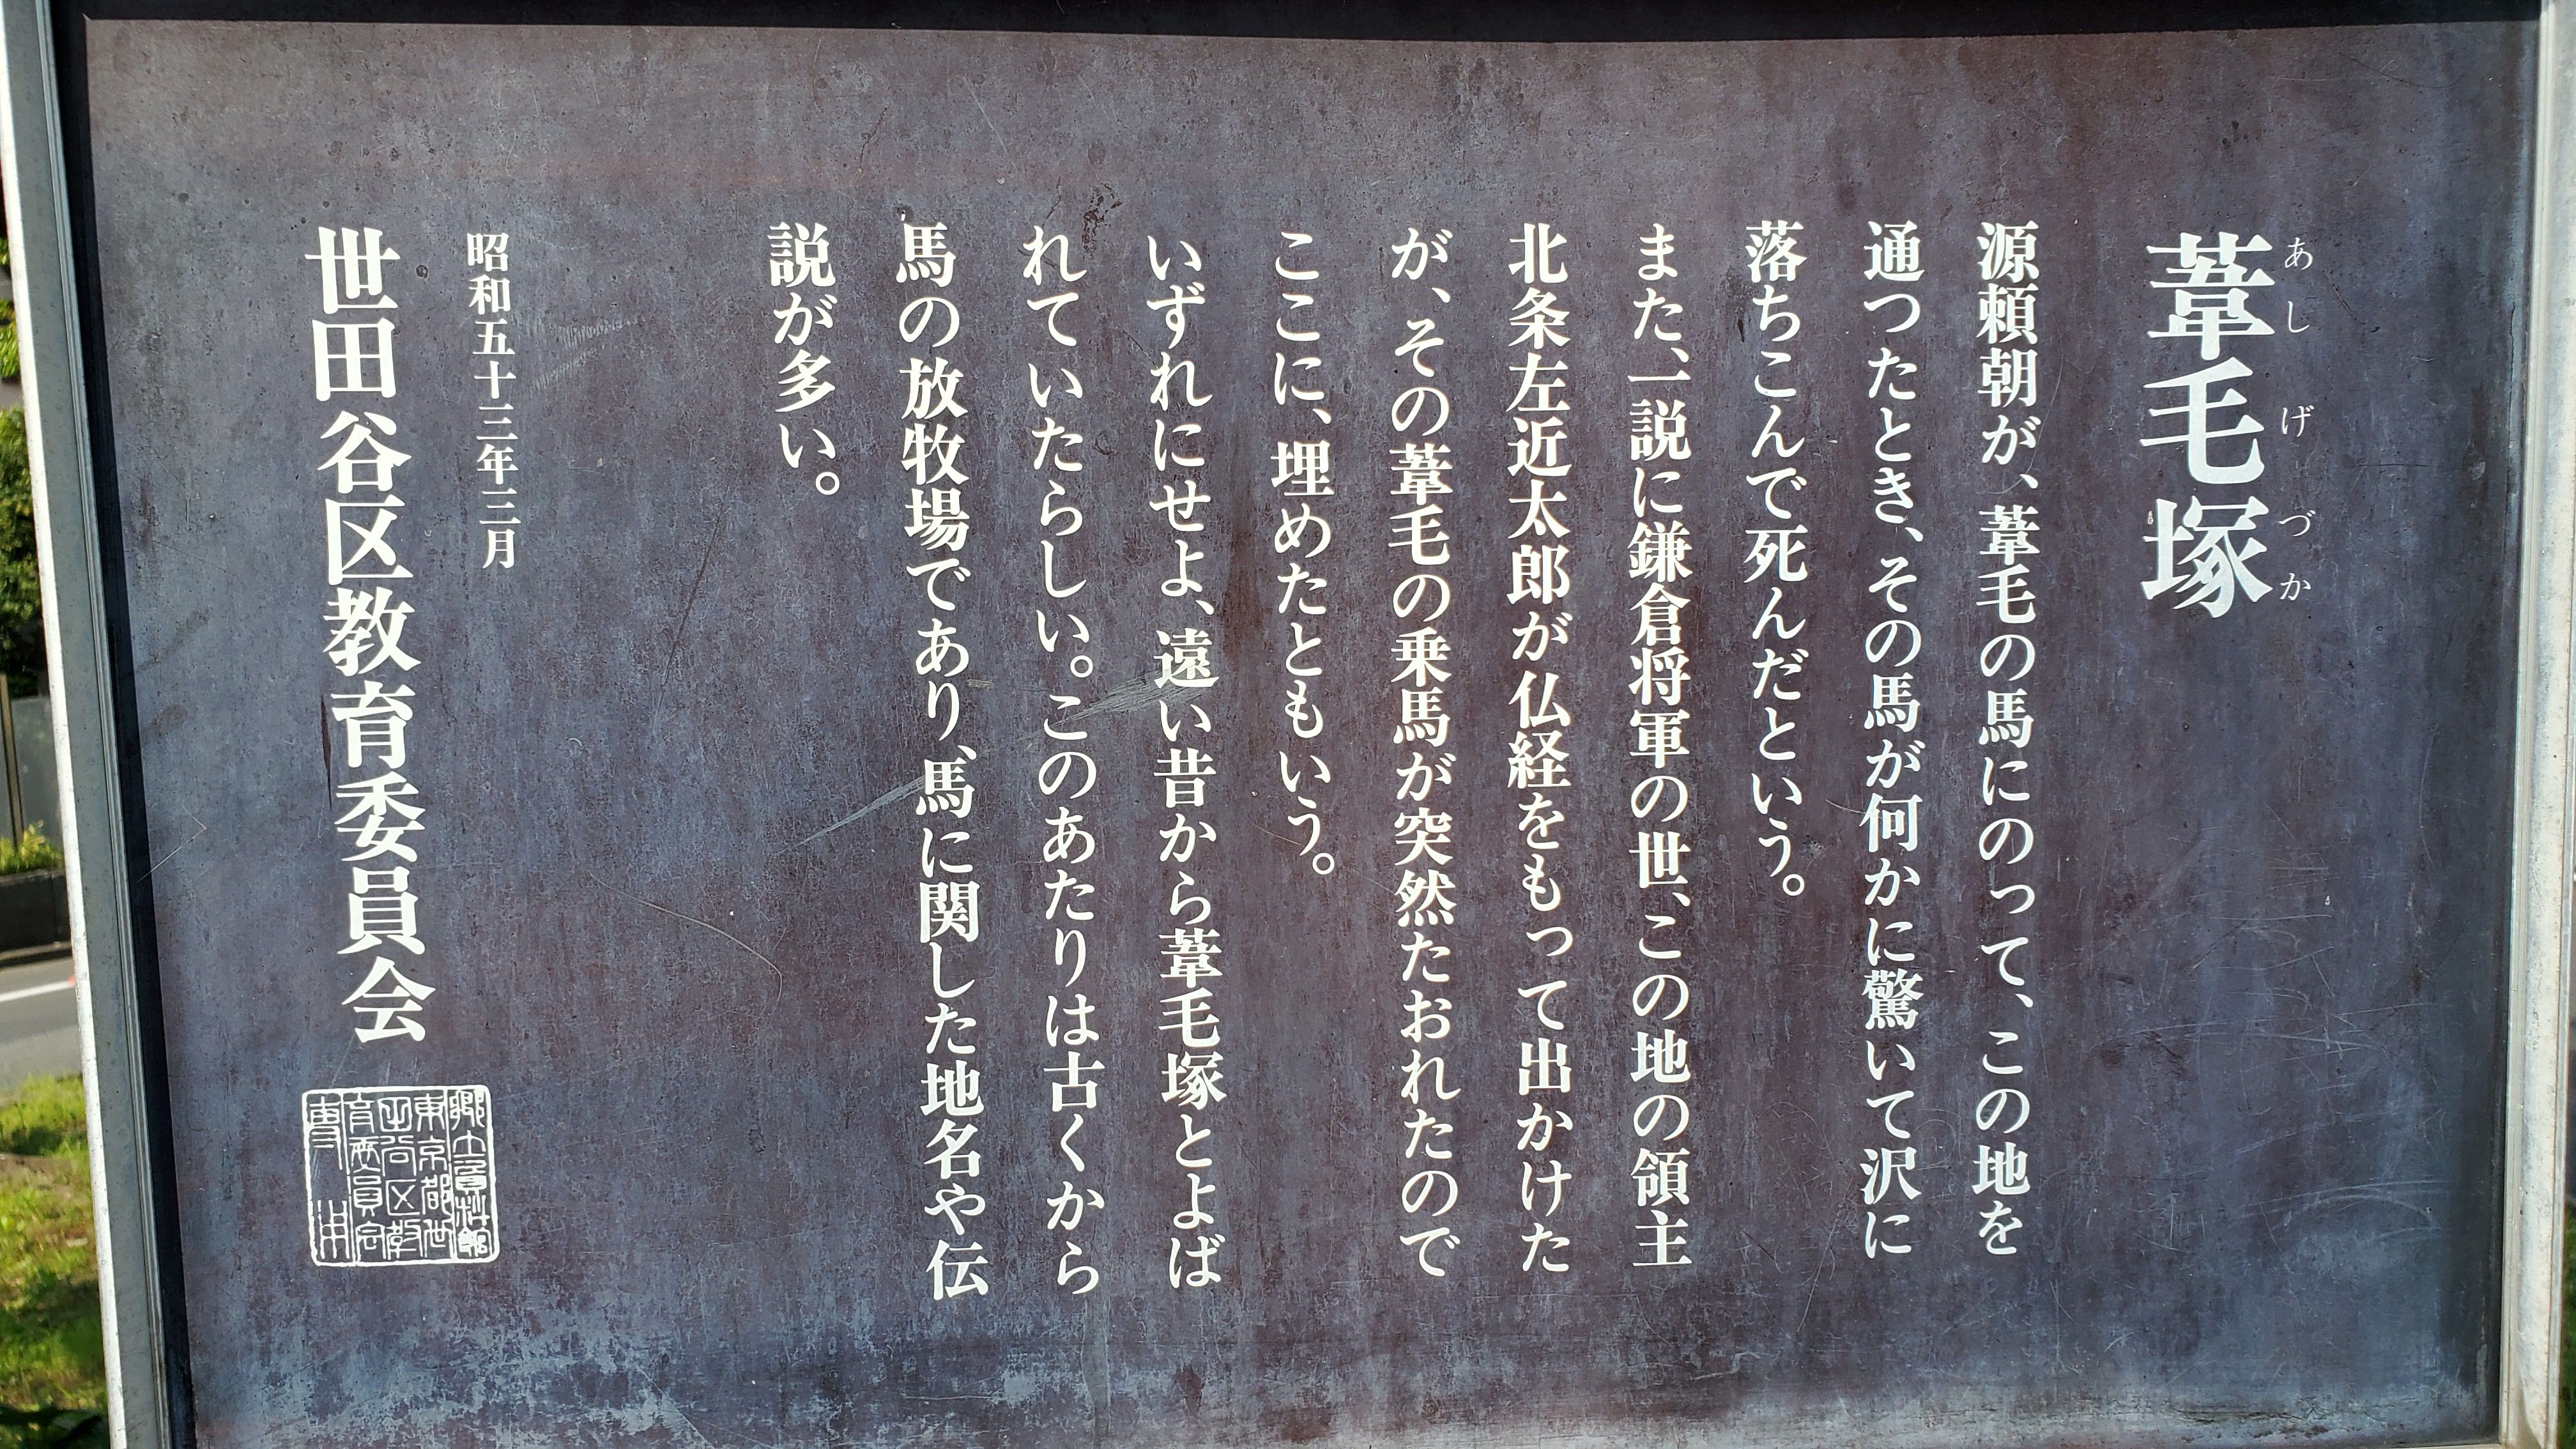 葦毛塚
あしげづか
源頼朝が、葦毛の馬にのって、この地を
通つたとき、その馬が何かに驚いて沢に
落ちこんで死んだという。
また、一説に鎌倉将軍の世、この地の領主
北条左近太郎が仏経をもって出かけた
が、その葦毛の乗馬が突然たおれたので
ここに、埋めたともいう。
いずれにせよ、遠い昔から葦毛塚とよば
れていたらしい。このあたりは古くから
馬の放牧場であり、馬に関した地名や伝
説が多い。
昭和五十三年三月
世田谷区教育委員会
郷土資料館
東京都世
田谷区教
育委員会
専用